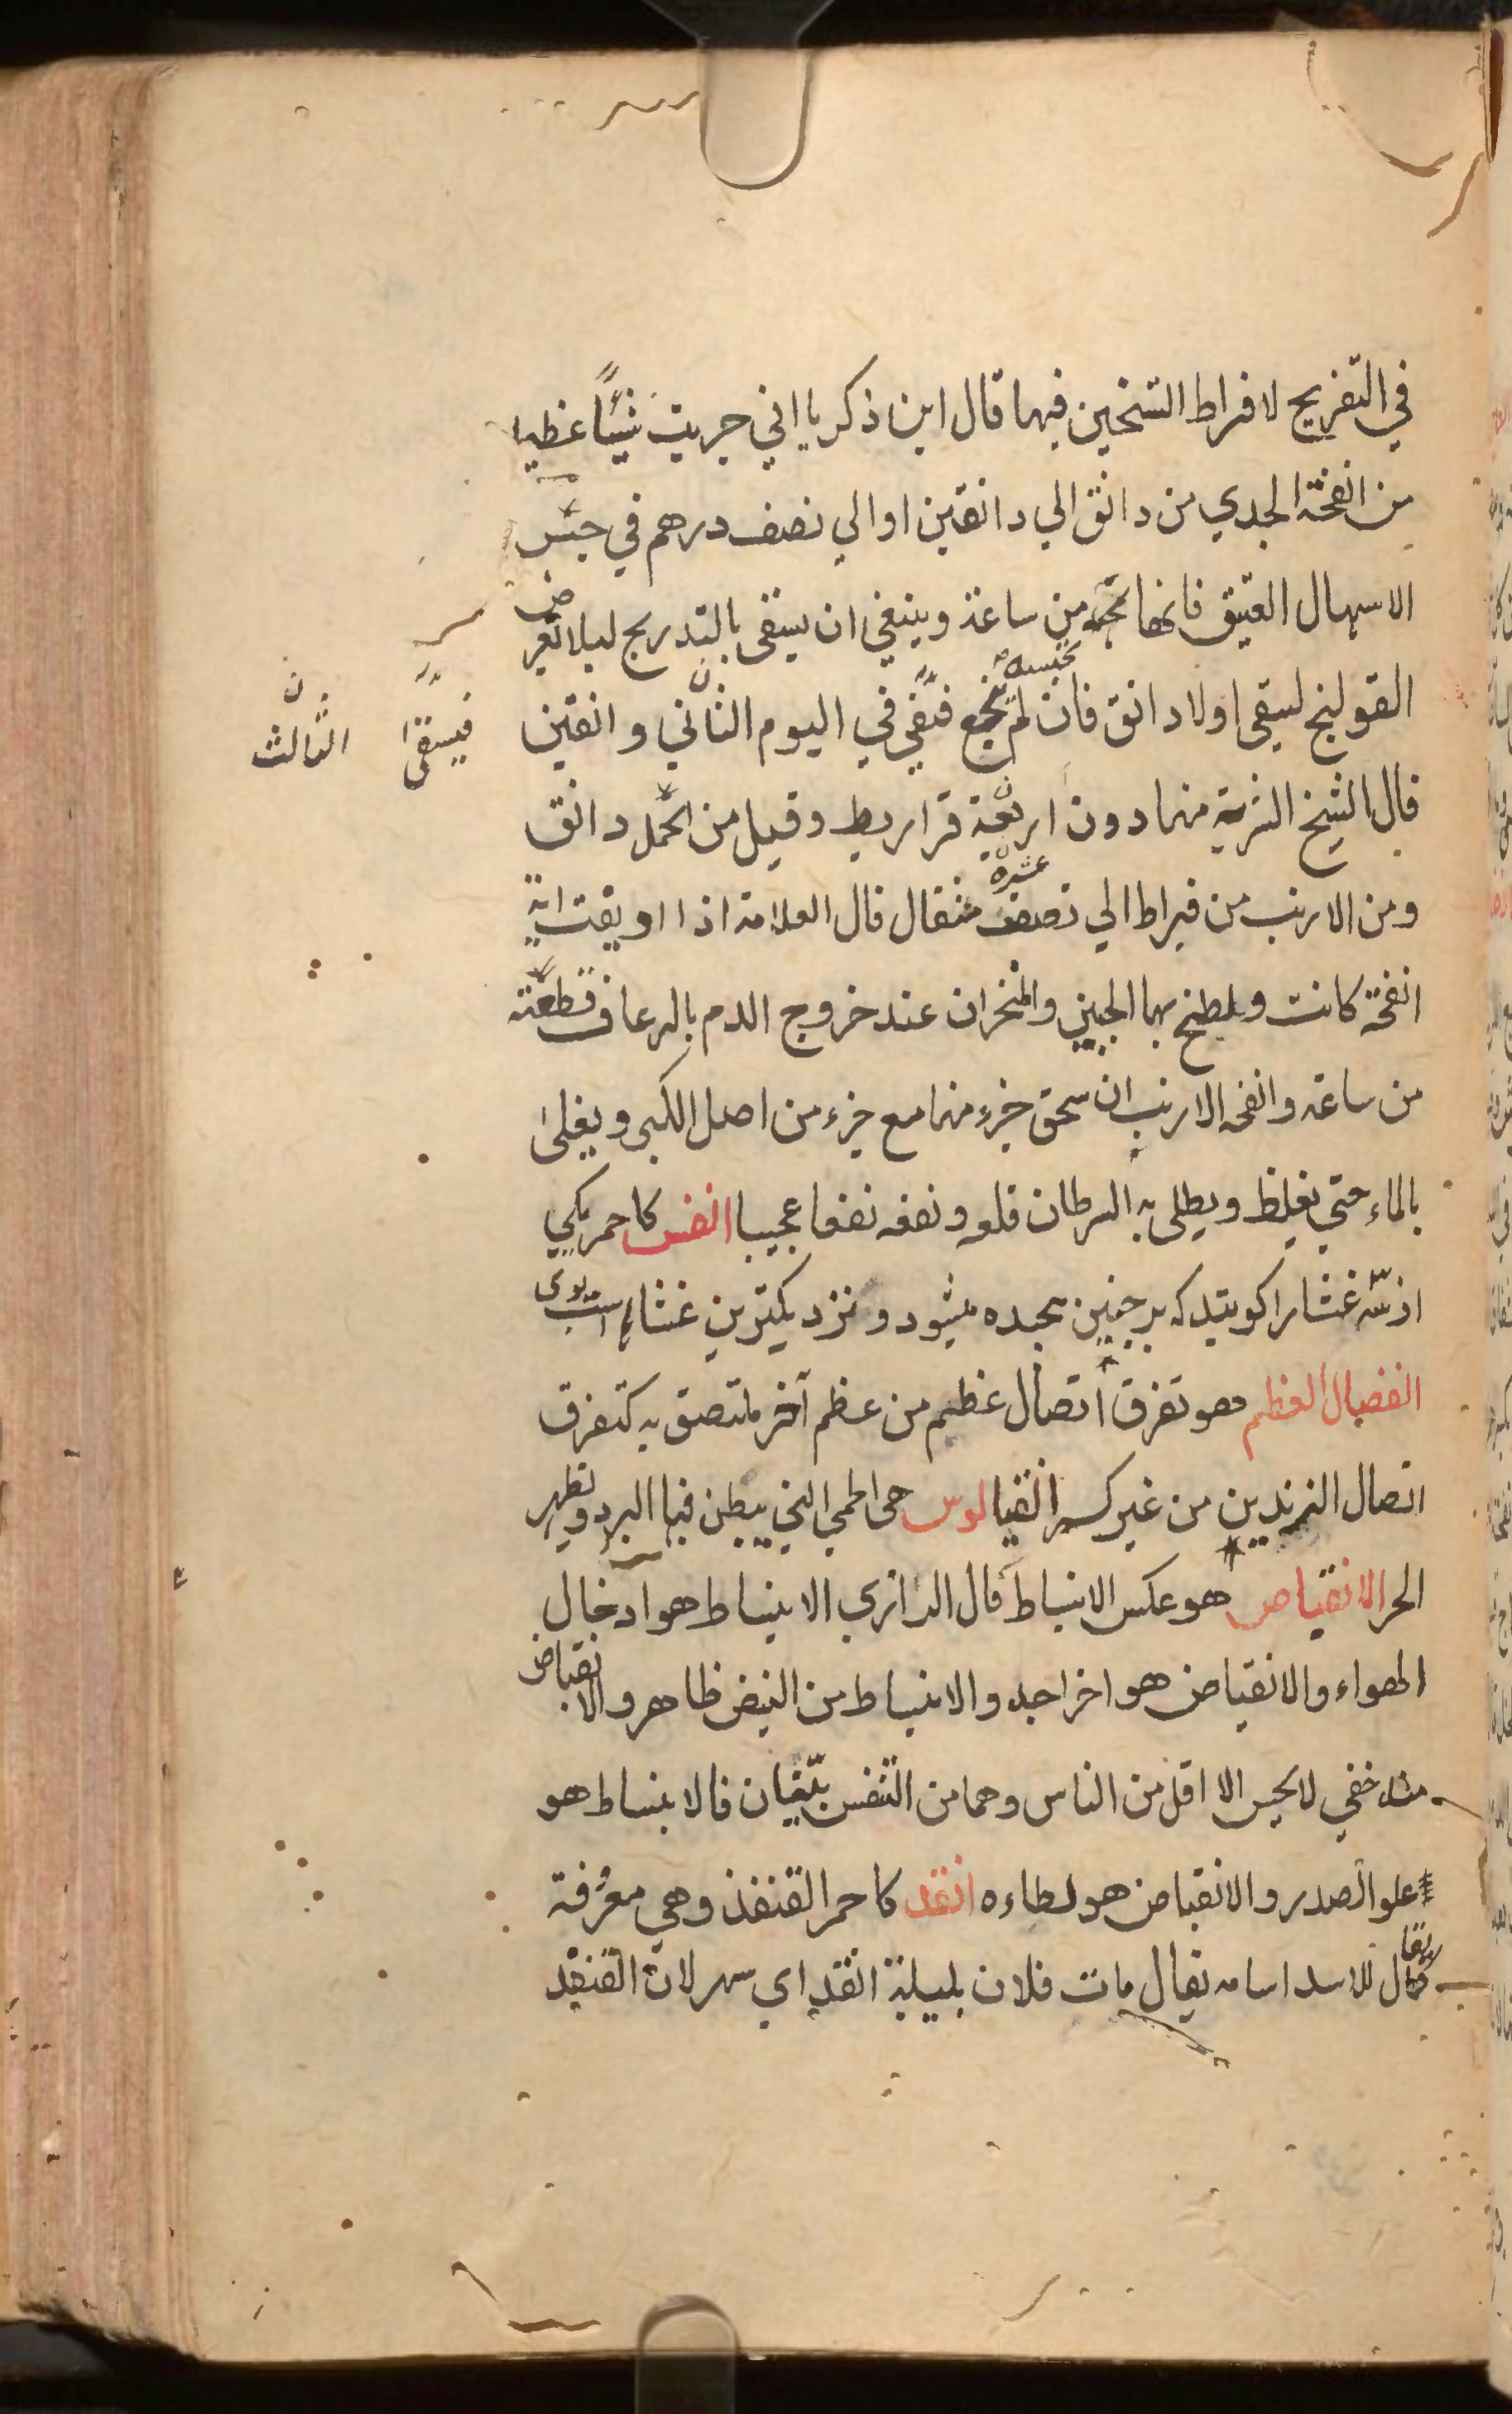 في التفريح لافراط التسخين فيها قال ابن ذكريا اني جربت شيئًا عظيما
من انفخة الجدي من دانق الي دانقين او الي نصف درهم في حبس
الاسهال العتيق فانها تحبسه من ساعة وينبغي ان يسقى بالتدريج ليلا تعرض
القولنج ليسقي اولا دانق فان لم ينجع فيفي في اليوم الثاني وانقين
فيسقى الثالث
قال الشيخ الشربة منها دون اربعة قراريط وقيل من الحمل دانق
ومن الارنب من قيراط الي نصف عشرة مثقال قال العلامة اذا اويقت اية
انفخة كانت ويلطخ بها الجبين والمنخران عند خروج الدم بالرعاف قطعته
من ساعته وانفخه الارنب ان سحق جزء منها مع جزء من اصل الكبى ويغلى
بالماء حتي يغلظ ويطلى به السرطان قلعه ونفعه نفعا عجيبا انفس كاحمر يكي
از سّه غشا را كويند كه بر جنين بيجده ميشود ونزديكترين غشا است بوى
انفصال العظم هو تفرق اتصال عظيم من عظم آخر ملتصق به كتفرق
اتصال الزندين من غير كسر انفيالوس هى الحمي التي يبطن فيها البرد ويظهر
الحر الانقباض هو عكس الانبساط قال الرازي الانبساط هو ادخال
الهواء والانقباض هو اخراجه والانبساط من النبض ظاهر والانقباض
منه خفي لا يحس الا اقل من الناس وهما من التنفس بيّنان فالانبساط هو
علو الصدر والانقباض هو لطاءه انقد كاحمر القنفذ وهي معرفة
كما يقال للاسد اسامه يقال مات فلان بليلة انقد اي سهر لان القنفد